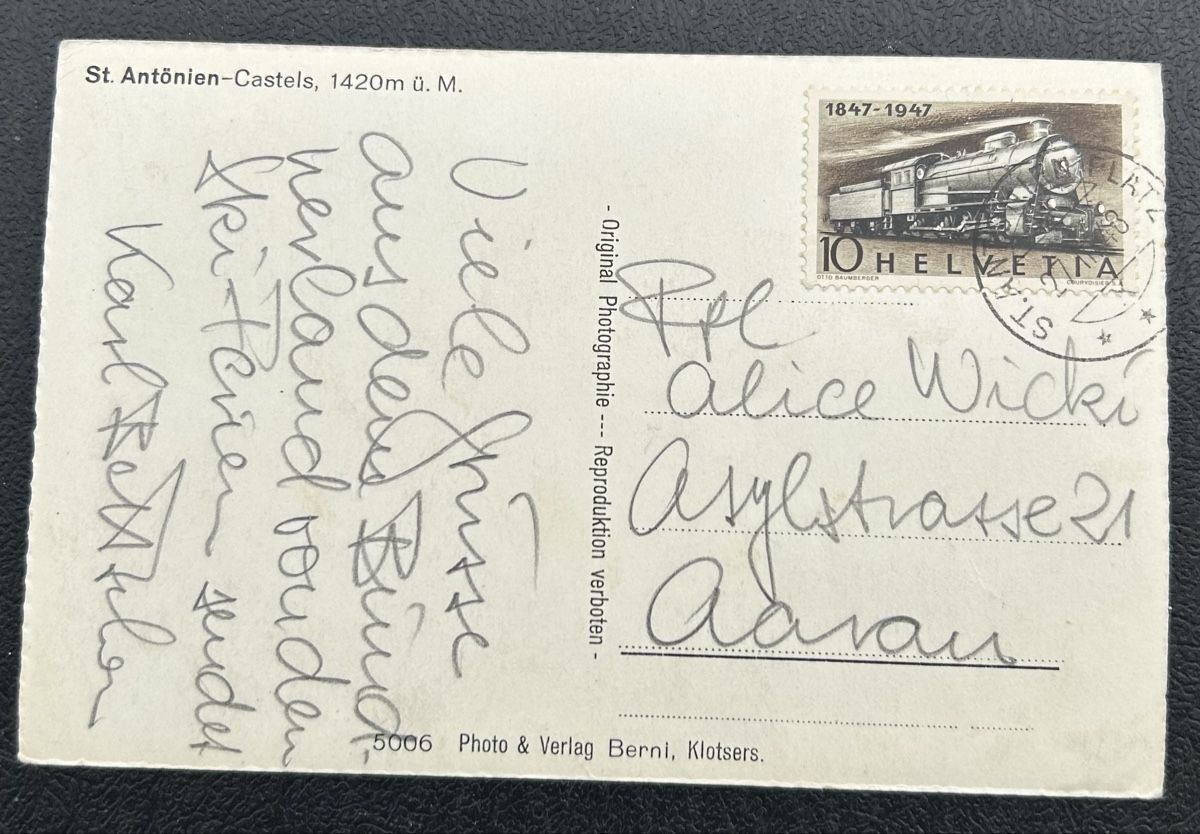 St. Antönien-Castels, 1420m ü. M.
Viele Grüsse
aus dem Bünd-
nerland von den
Ski-Ferien sendet
Karl
- Original Photographie --- Reproduktion verboten -
1847-1947
10 HELVETIA
OTTO BAUMBERGER
COURVOISIER S.A.
ST. PLATZ
Alice Wicki
Asylstrasse 21
Aarau
5006 Photo & Verlag Berni, Klotsers.